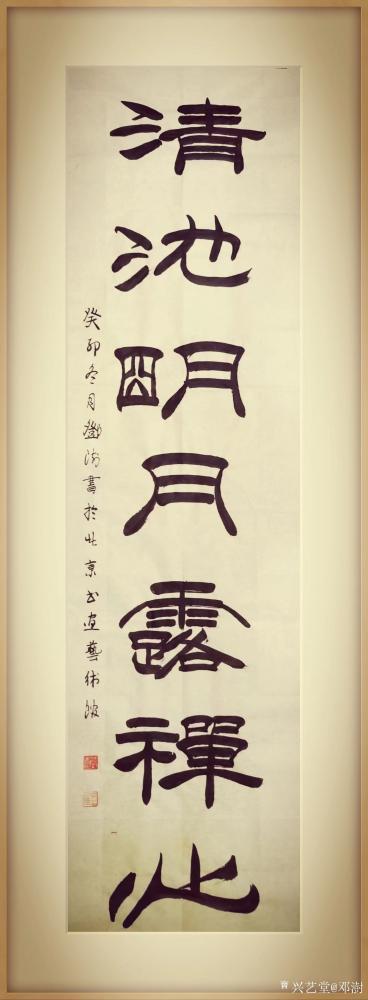 清池朙月露禪心
癸卯冬月鄧澍書於北京书画藝術館
兴艺堂@邓澍